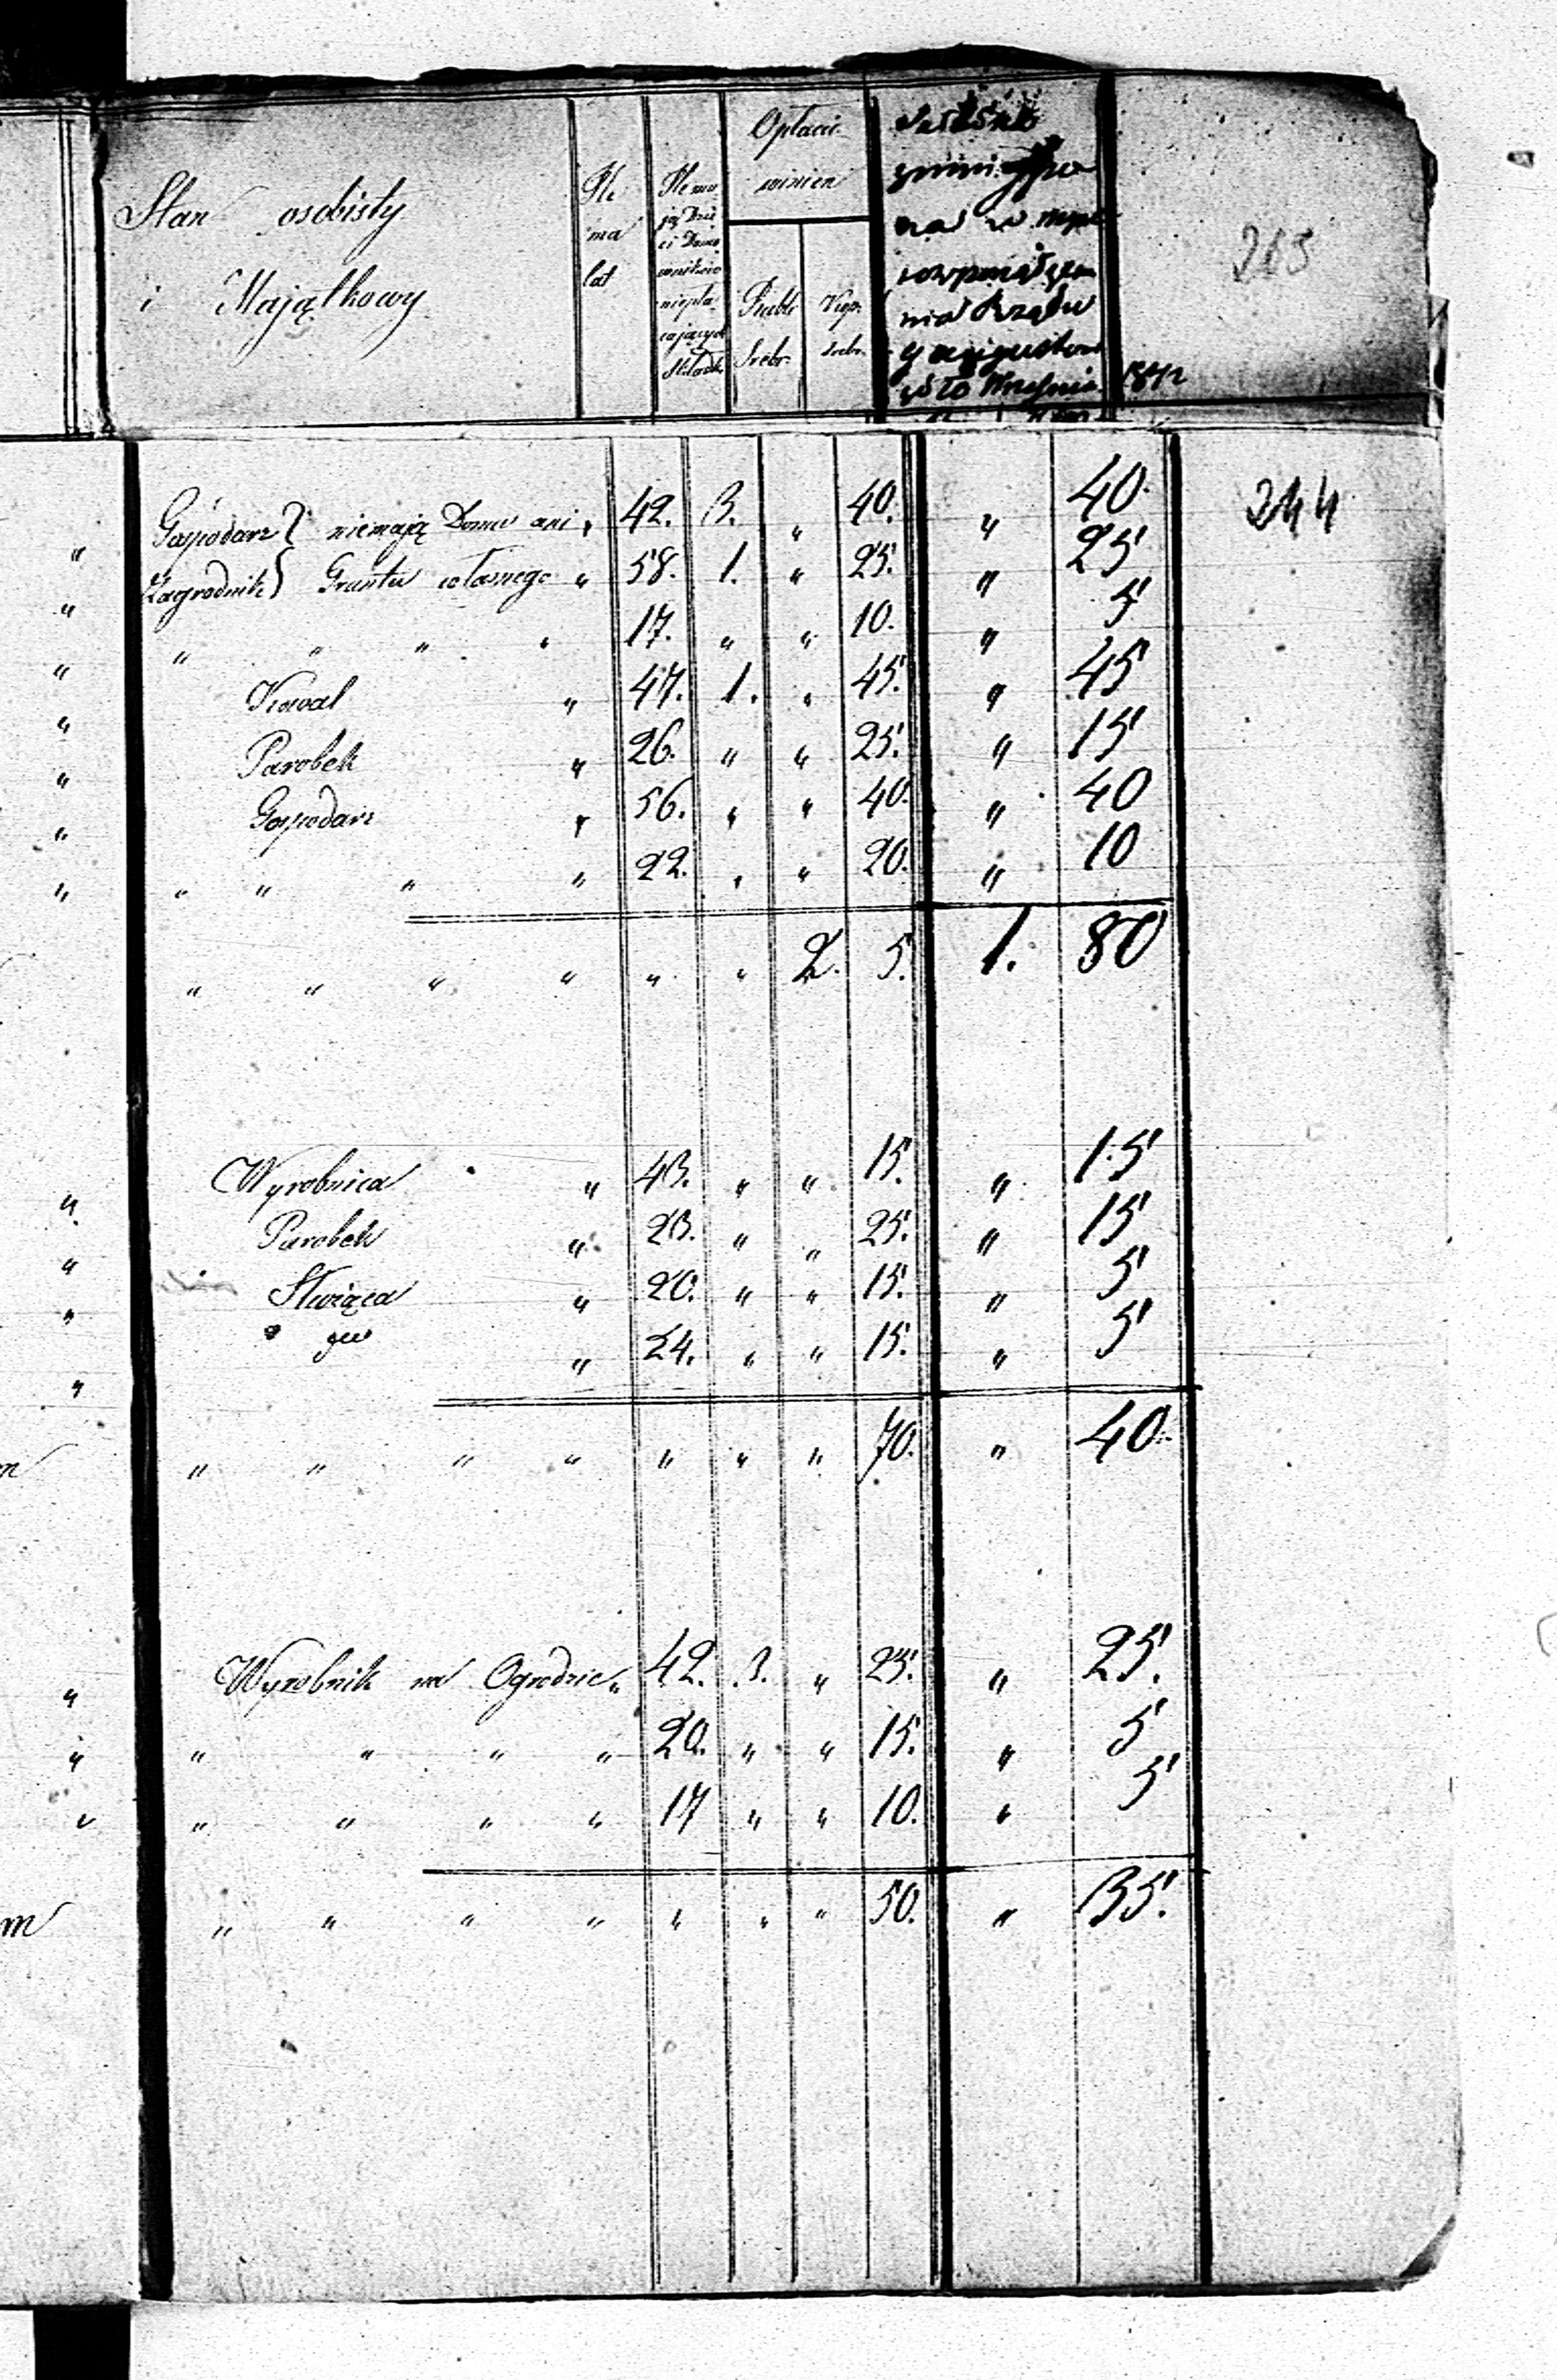 Stan osobisty
i Majątkowy
Ile
ma
lat
Ile ma-
ją Dzie
ci
niepła-
cających
Składk
Opłacić
winien
Rubli
Srebr.
Kop.
srebr.
1842
265
244
" Gospodarz } niemają Domu ani " 42. 3. " 40. " 40.
" Zagrodnik } Gruntu własnego " 58. 1. " 25. " 25
" " " " " 17. " " 10. " 5
" Kowal " 47. 1. " 45. " 45
" Parobek " 26. " " 25. " 15
" Gospodarz " 56. " " 40. " 40
" " " " " 22. " " 20. " 10
" " " " " " 2. 5. 1. 80
" Wyrobnica " 43. " " 15. " 15
" Parobek " 23. " " 25. " 15
" Służąca " 20. " " 15. " 5
" " 24. " " 15. " 5
m " " " " " " " 70. " 40.
" Wyrobnik na Ogrodzie " 42. 3. " 25. " 25.
" " " " " 20. " " 15. " 5
" " " " " 17 " " 10. " 5
m " " " " " " " 50. " 35.